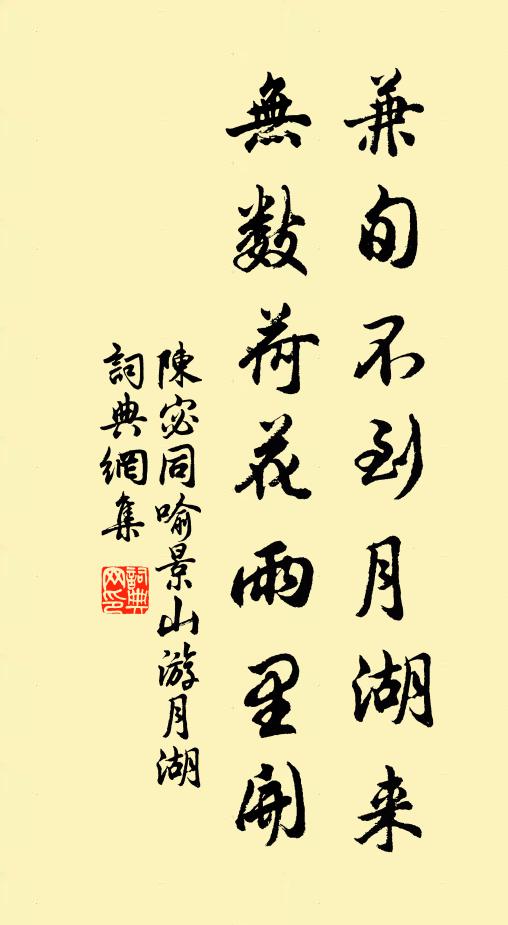 兼旬不到月湖来
無数荷花雨里開
陳宓同喻景山游月湖
詞典網集
詞典网印